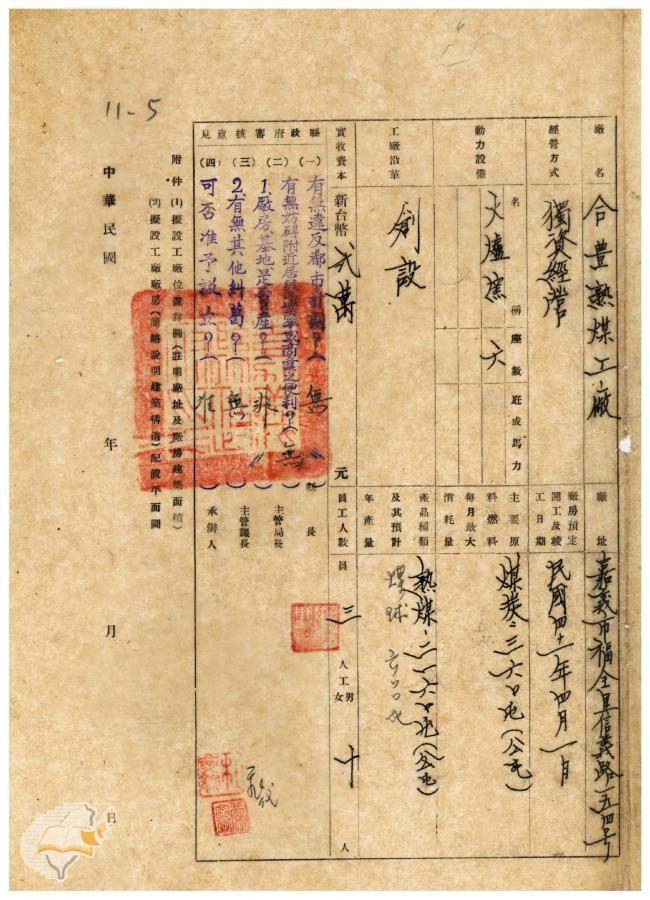 11-5
廠名 合豐熟煤工廠
廠址 嘉義市福全里信義路一五四號
經營方式 獨資經營
廠房預定開工及竣工日期 民國四十一年四月一日
動力設備
名稱 座數 班或馬力
火爐窯 六
主要原料燃料每月最大消耗量
煤炭:三六〇屯(公屯)
工廠沿革 創設
產品種類及其預計年產量
熟煤:二一六〇屯(公屯)
煤球 六〇〇屯
實收資本 新台幣 弍萬 元
員工人數 員 三 工人 男女 十 人
縣政府審核意見
(一) 有無違反都市計劃?( 無 )
(二) 有無妨碍附近居民
(三) 1.廠房基地是
2.有無其他糾葛?( 無 )
(四) 可否准予設立?( 准 )
縣長
主管局長
主管課長
承辦人
附件 (1) 擬設工廠位置詳圖(註明廠址及廠房建築面積)
(2) 擬設工廠廠房(簡略說明建築構造)配置平面圖
中華民國 年 月 日